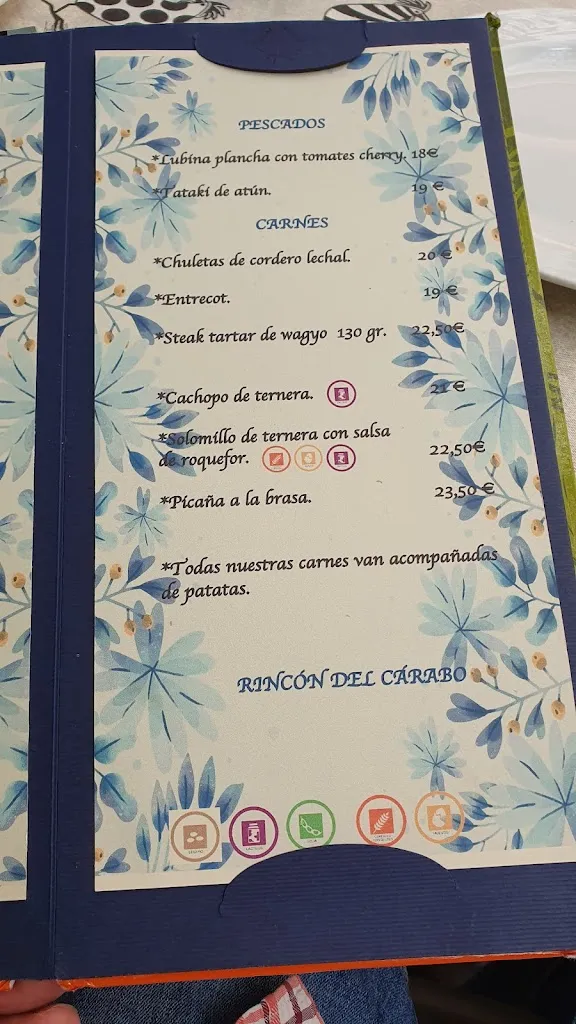 PESCADOS
*Lubina plancha con tomates cherry. 18€
*Tataki de atún. 19 €
CARNES
*Chuletas de cordero lechal. 20 €
*Entrecot. 19 €
*Steak tartar de wagyo 130 gr. 22,50€
*Cachopo de ternera. 21 €
*Solomillo de ternera con salsa
de roquefor. 22,50€
*Picaña a la brasa. 23,50 €
*Todas nuestras carnes van acompañadas
de patatas.
RINCÓN DEL CÁRABO